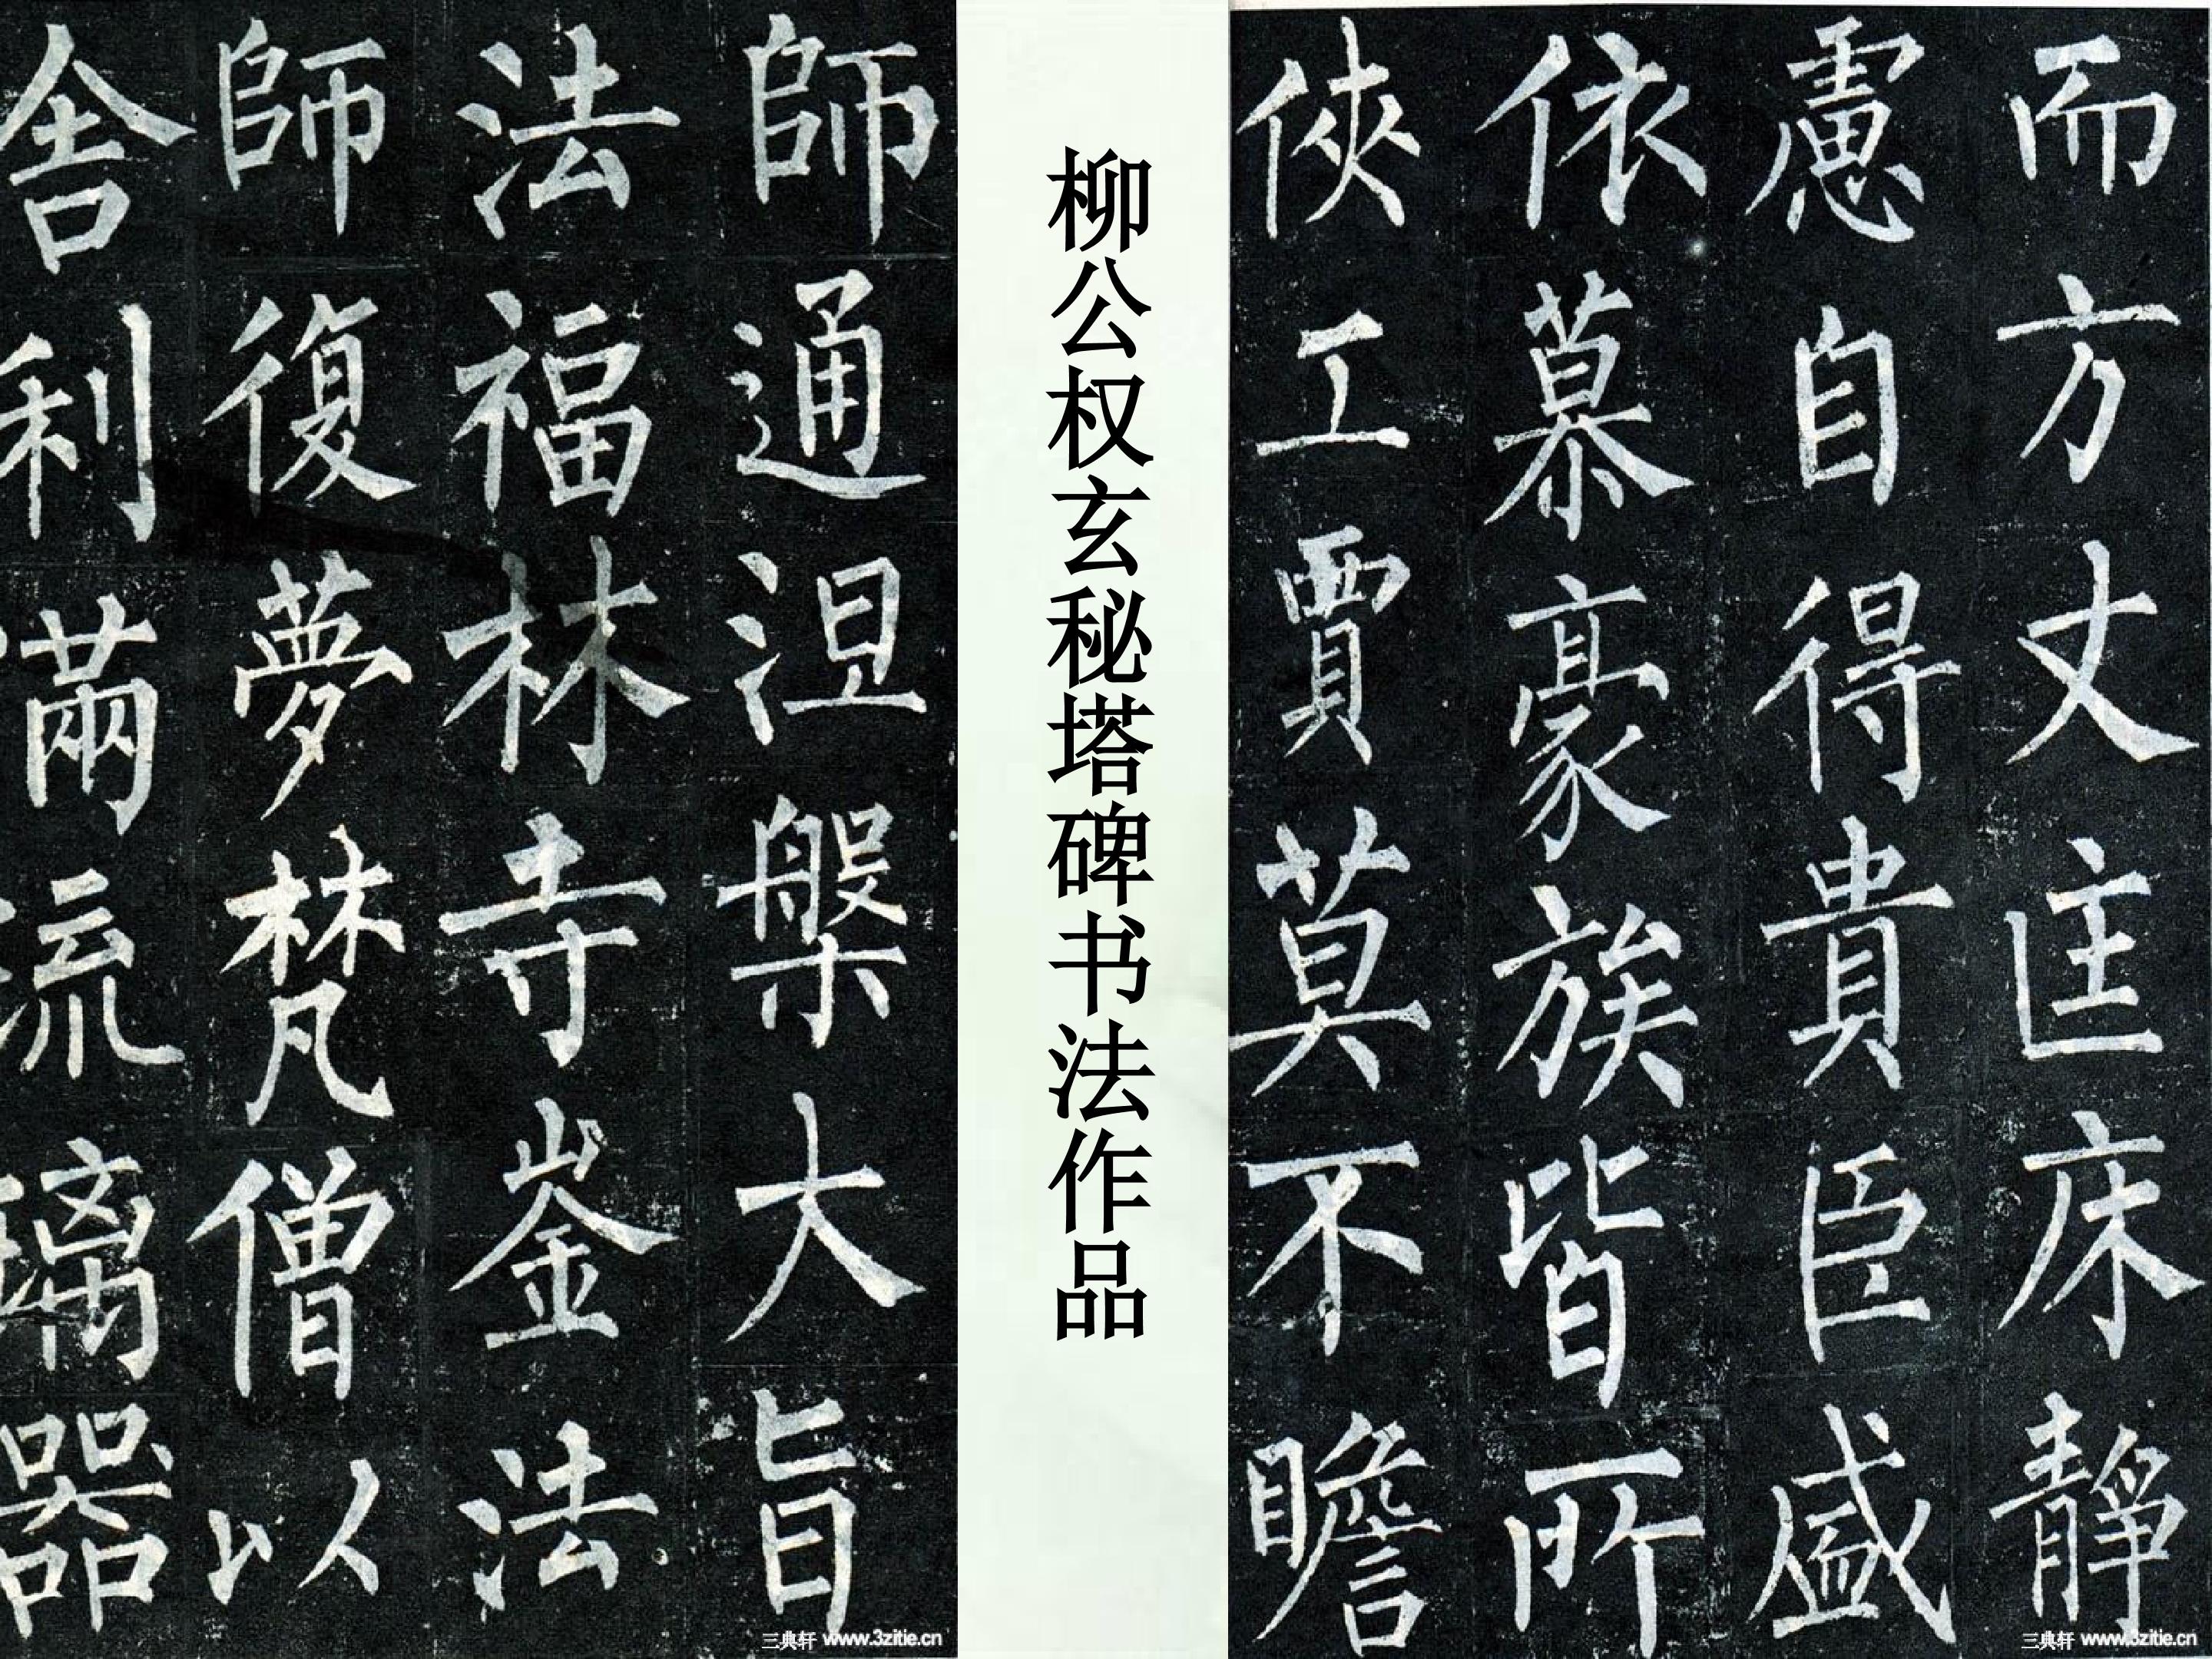 而方丈匡床静
慮自得貴臣盛
依慕豪族皆所
俠工賈莫不瞻
柳公权玄秘塔碑书法作品
師通涅槃大旨
法福林寺崟法
師復夢梵僧以
舍利滿琉璃器
三典轩 www.3zitie.cn
三典轩 www.3zitie.cn